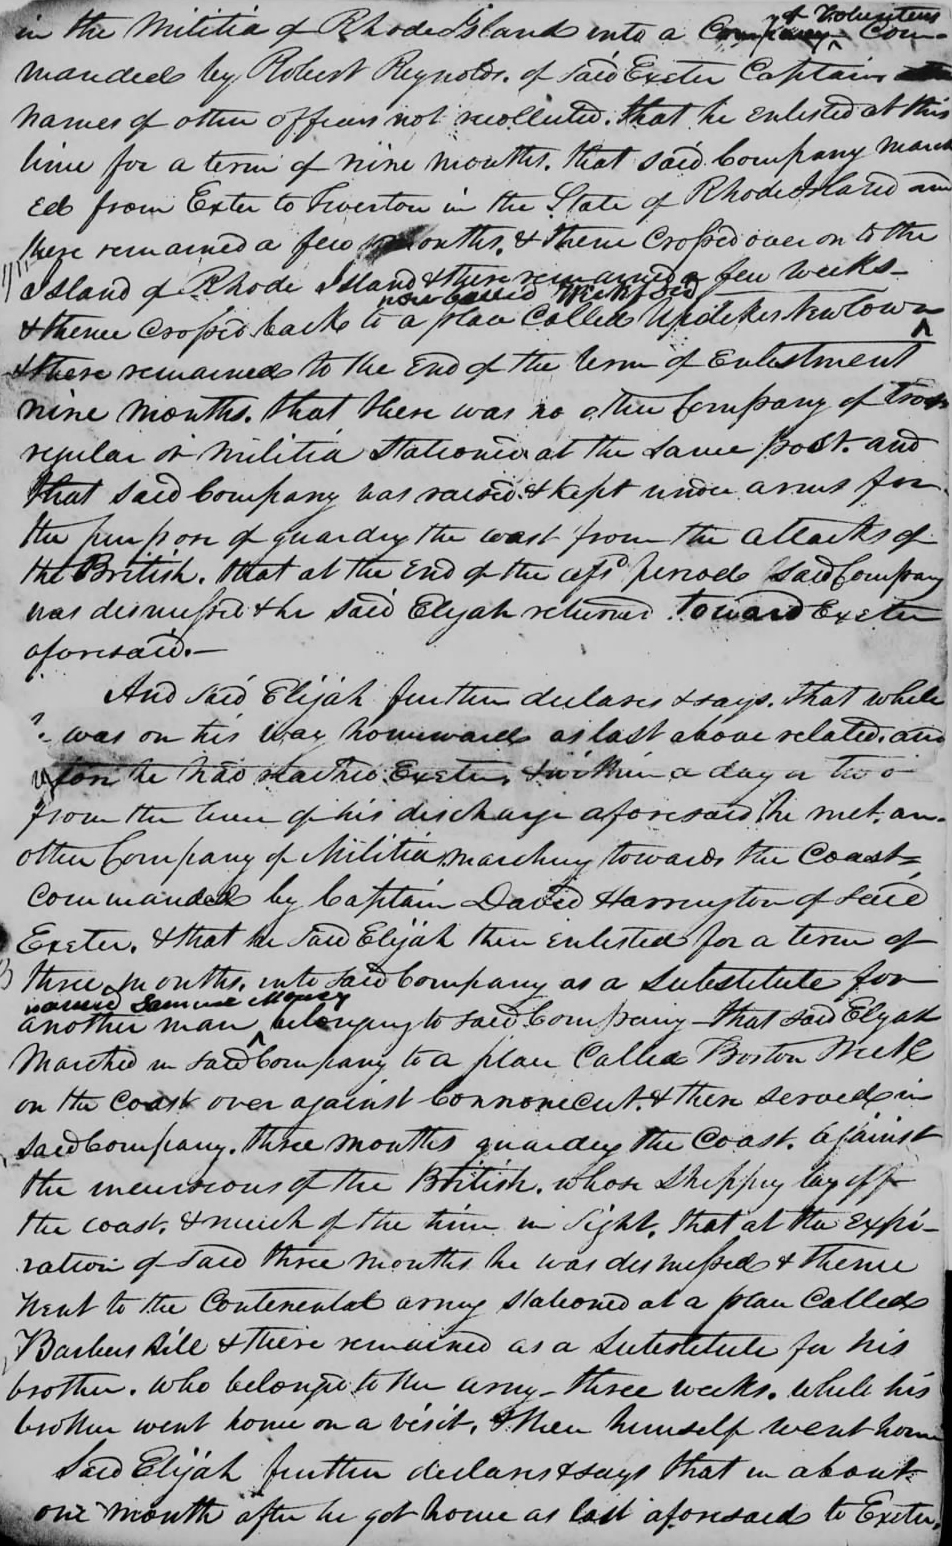 of Volunteers
in the Militia of Rhode Island into a Company Com-
manded by Robert Reynolds. of said Exeter Captain
names of other officers not recollected. that he enlisted at this
time for a term of nine months. that said Company march
ed from Exeter to Tiverton in the State of Rhode Island and
there remained a few months, & thence crossed over on to the
Island of Rhode Island & there remained a few weeks-
now called Wickford
& thence crossed back to a place called Updikes Newtown
& there remained to the End of the term of Enlistment
nine months. that there was no other Company of troops
regular or militia stationed at the same post. and
that said Company was raised & kept under arms for
the purpose of guarding the coast from the attacks of
the British. that at the End of the afsd period said Company
was dismissed & he said Elijah returned toward Exeter
aforesaid.-
And said Elijah further declares & says. that while
was on his way homeward as last above related. and
before he had reached Exeter, & within a day or two
from the time of his discharge aforesaid he met an-
other Company of Militia marching towards the Coast-
commanded by Captain David Harrington of said
Exeter. & that he said Elijah then enlisted for a term of
three months. into said Company as a substitute for
named Samuel Money
another man belonging to said Company - that said Elijah
marched in said Company to a place called Boston Neck
on the coast over against Connonecut. & there served in
said Company. three months guarding the Coast. against
the incursions of the British. whose shipping lay off
the coast. & much of the time in sight. that at the expi-
ration of said three months he was dismissed & thence
went to the Continental army stationed at a place called
Barbers Hill & there remained as a substitute for his
brother. who belonged to the army - three weeks. while his
brother went home on a visit. & then himself went home
Said Elijah further declares & says that in about
one month after he got home as last aforesaid to Exeter,